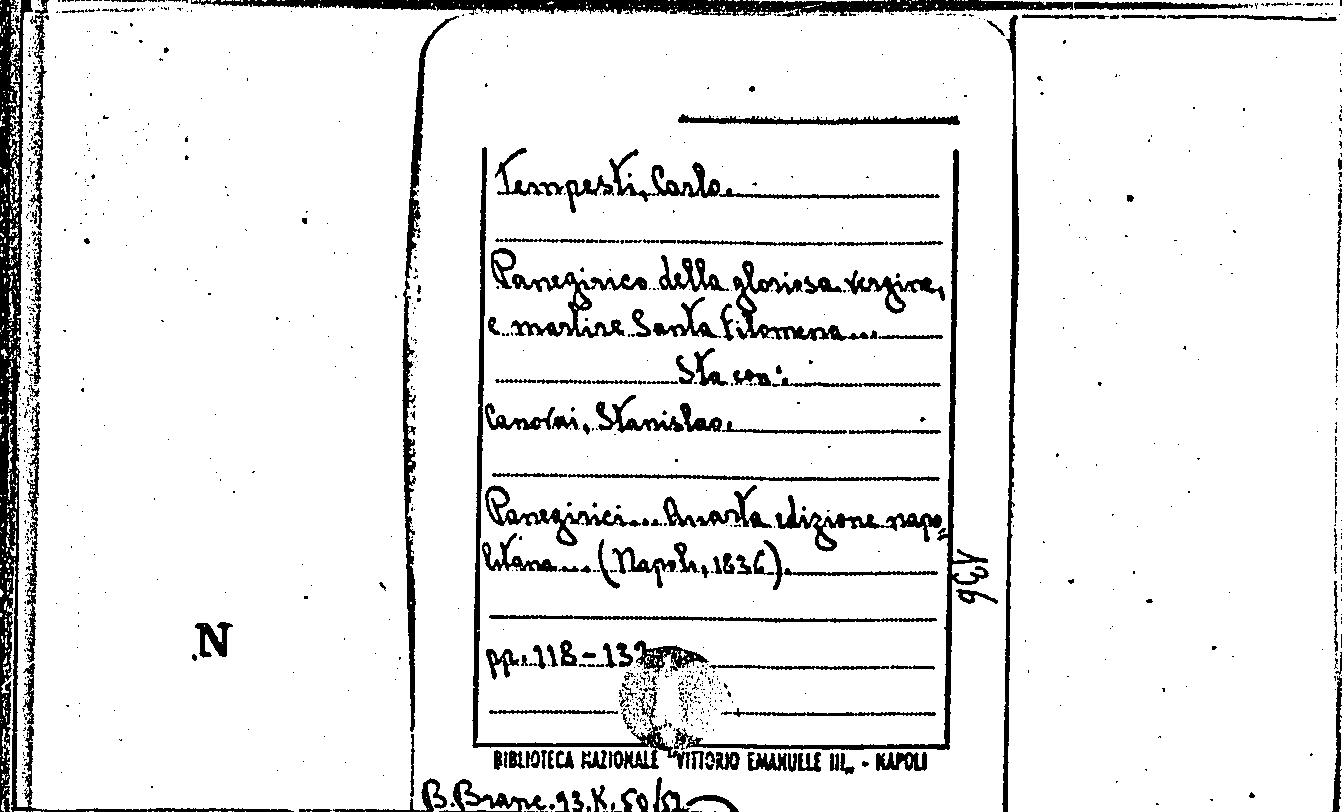 Tempesti, Carlo.
Panegirico della gloriosa vergine,
e martire Santa Filomena...
Sta con:
Canovai, Stanislao.
Panegirici... Quarta edizione napo=
litana... (Napoli, 1836).
136
N
pp. 118-132
BIBLIOTECA NAZIONALE "VITTORIO EMANUELE III„ - NAPOLI
B. Branc. 93. K. 50/51